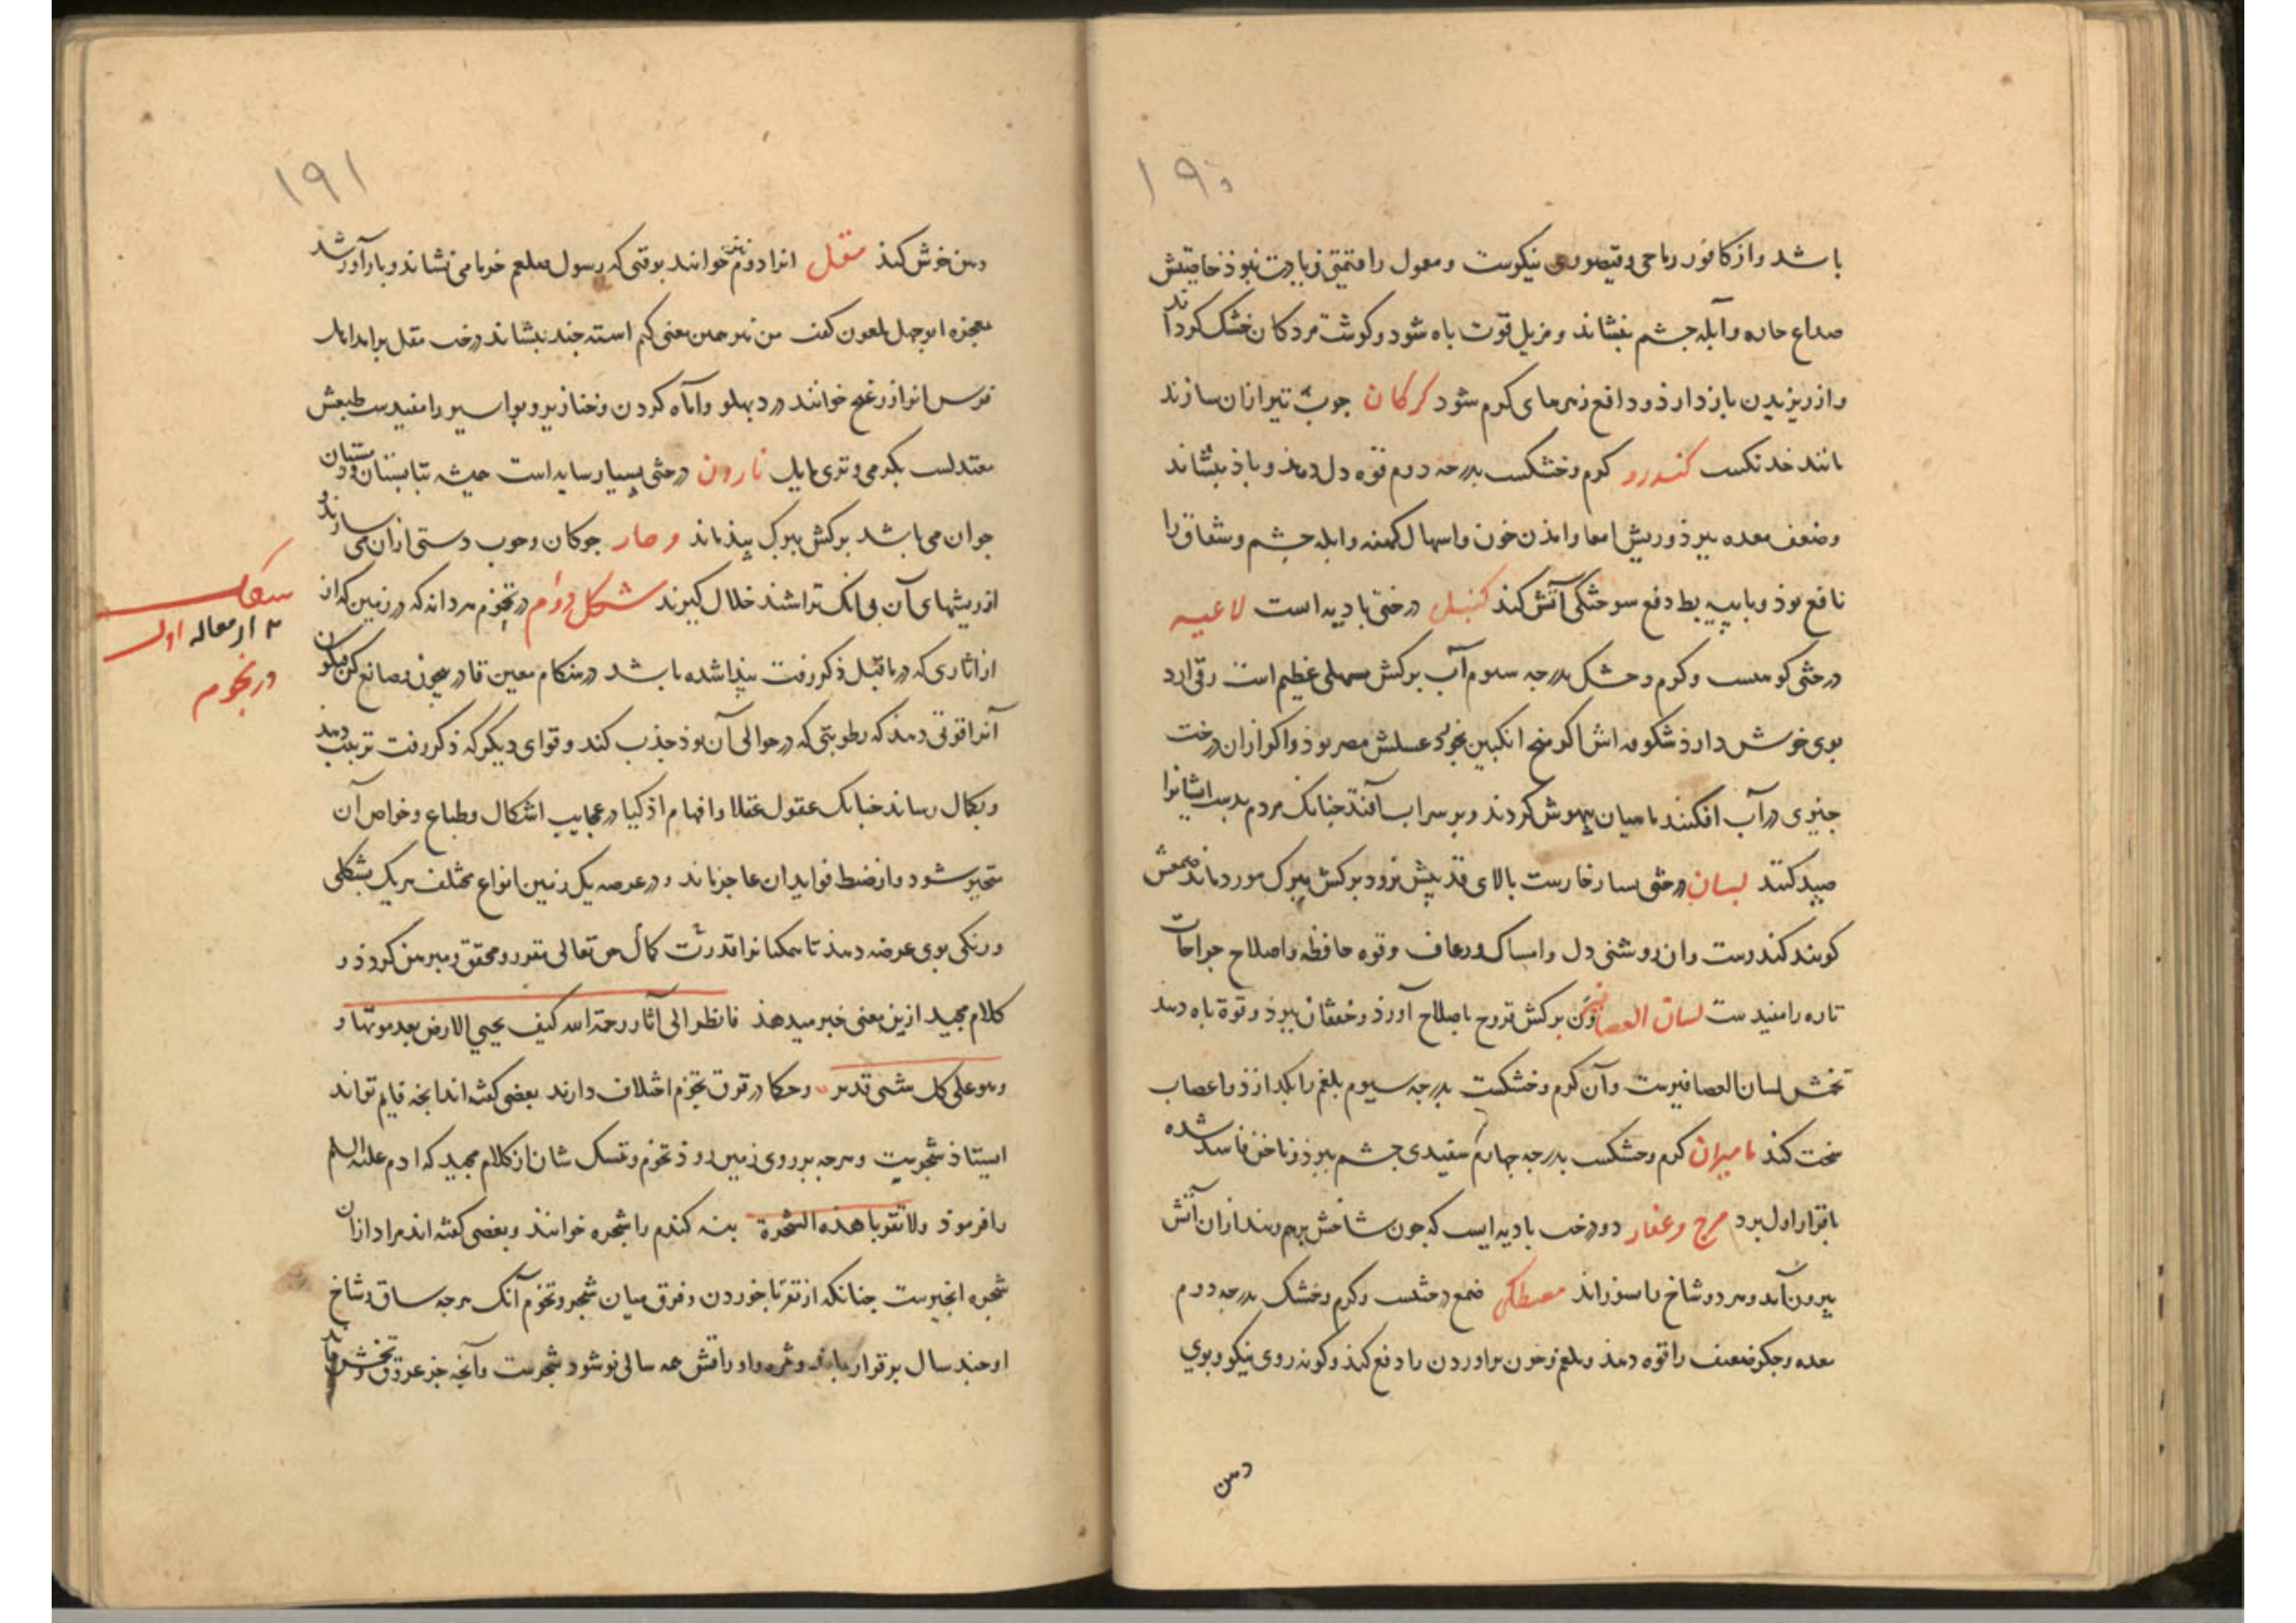 ۱۹۰
باشد و از کافور رباحی و قیصوری نیکوست و معمول را قیمتی زیادت نبوذ خاصیتش
صداع حاره و آبله جشم بنشاند و مزیل قوت باه شود و کوشت مردکان خشک کرداند
و از ریزیدن بازدارذ و دافع زهرهای کرم شود کرکان جوب تیر ازان سازند
مانند خدنکست کندرو کرم و خشکست بدرجه دوم قوه دل دهذ و باذ بنشاند
وضعف معده ببرذ و ریش امعا و امذن خون و اسهال کهنه و ابله جشم و شقاق را
نافع بوذ و با پیه بط دفع سوختکی آتش کند کنبل درختی بادیه است لاعیه
درختی کوهیست و کرم و خشک بدرجه سوم آب برکش مسهلی عظیم است
بوی خوش دارذ شکوفه اش اکر منج انکبین بخورد عسلش مضر بوذ و اکر ازان درخت
جیزی در آب افکنند ماهیان بیهوش کردند و بر سر اب آفتند جنانک مردم بدست ایشانرا
صید کنند لبان درختی بسیار خارست بالای قد بیش نرود برکش ببرک مورد ماند صمغش
کویند کندرست و ان روشنی دل و امساک رعاف و قوه حافظه و اصلاح جراحات
تازه را مفیدست لسان العصافیر برکش قروح باصلاح آورذ و خفقان ببرذ و قوة باه دهد
تخمش لسان العصافیرست و آن کرم و خشکست بدرجه سیوم بلغم را بکدازذ و اعصاب
سخت کند مامیران کرم و خشکست بدرجه جهارم سفیدی جشم ببرذ و ناخن فاسد شده
باقرار اول برد مرخ و عفار دو درخت بادیه ایست که جون شاخش بهم زنند ازان آتش
بیرون آید و هر دو شاخ را بسوزاند مصطکی صمغ درختیست و کرم و خشک بدرجه دوم
معده و جکر ضعیف را قوه دهذ و بلغم و خون براوردن را دفع کند و کونه روی نیکو و بوی
دهن
۱۹۱
دهن خوش کند مقل انرا دوم خوانند بوقتی که رسول صلعم خرما می نشاند و بارآور شد
بمعجزه ابوجهل ملعون کفت من نیز همین معنی کنم استه جند بنشاند درخت مقل برامد
فرس انرا خوانند درد بهلو و آماه کردن و خنازیر و بواسیر را مفیدست طبعش
معتدلست بکرمی و تری مایل نارون درختی بسیار سایه است همیشه بتابستان و زمستان
جوان می باشد برکش ببرک بیذ ماند و جوکان و جوب دستی ازان می سازند و
از ریشهای آن بی انک تراشند خلال کیرند شکل دوم در نجوم هر دانه که در زمین که از
از اثاری که در ماقبل ذکر رفت بیدا شده باشد در هنکام معین قادر بیجون و صانع کن فیکون
آنرا قوتی دهد که رطوبتی که در حوالی آن بوذ جذب کند و قوای دیکر که ذکر رفت تربیت دهد
و بکمال رساند جنانک عقول عقلا و افهام اذکیا در عجایب اشکال و طباع و خواص آن
متحیر شود و از ضبط فواید ان عاجز ماند و در عرصه یک زمین انواع مختلف هر یک بشکلی
و رنکی بوی عرضه دهند تا همکنانرا قدرت کمال حق تعالی مقرر و محقق و مبرهن کردذ و
کلام مجید ازین معنی خبر میدهذ فانظر الی آثار رحمة الله کیف یحیی الارض بعد موتها و
وهو علی کل شیء قدیر و حکما در فرق نجوم اختلاف دارند بعضی کفته اند انجه قایم تواند
ایستاذ شجریت و هرجه بر روی زمین روذ نجوم و تمسک شان از کلام مجید که ادم علیه السلم
را فرموذ ولا تقربا هذه الشجرة بنه کندم را شجره خوانند و بعضی کفته اند مراد ازان
شجره انجیرست جنانکه از تقربا خوردن و فرق میان شجر و نجوم آنک هرجه ساق و شاخ
او جند سال برقرار باند و ثمره و اوراقش همه سالی نو شود شجرست و آنجه جز عروق و تخمش
شکل
۲ از مقاله اول
در نجوم